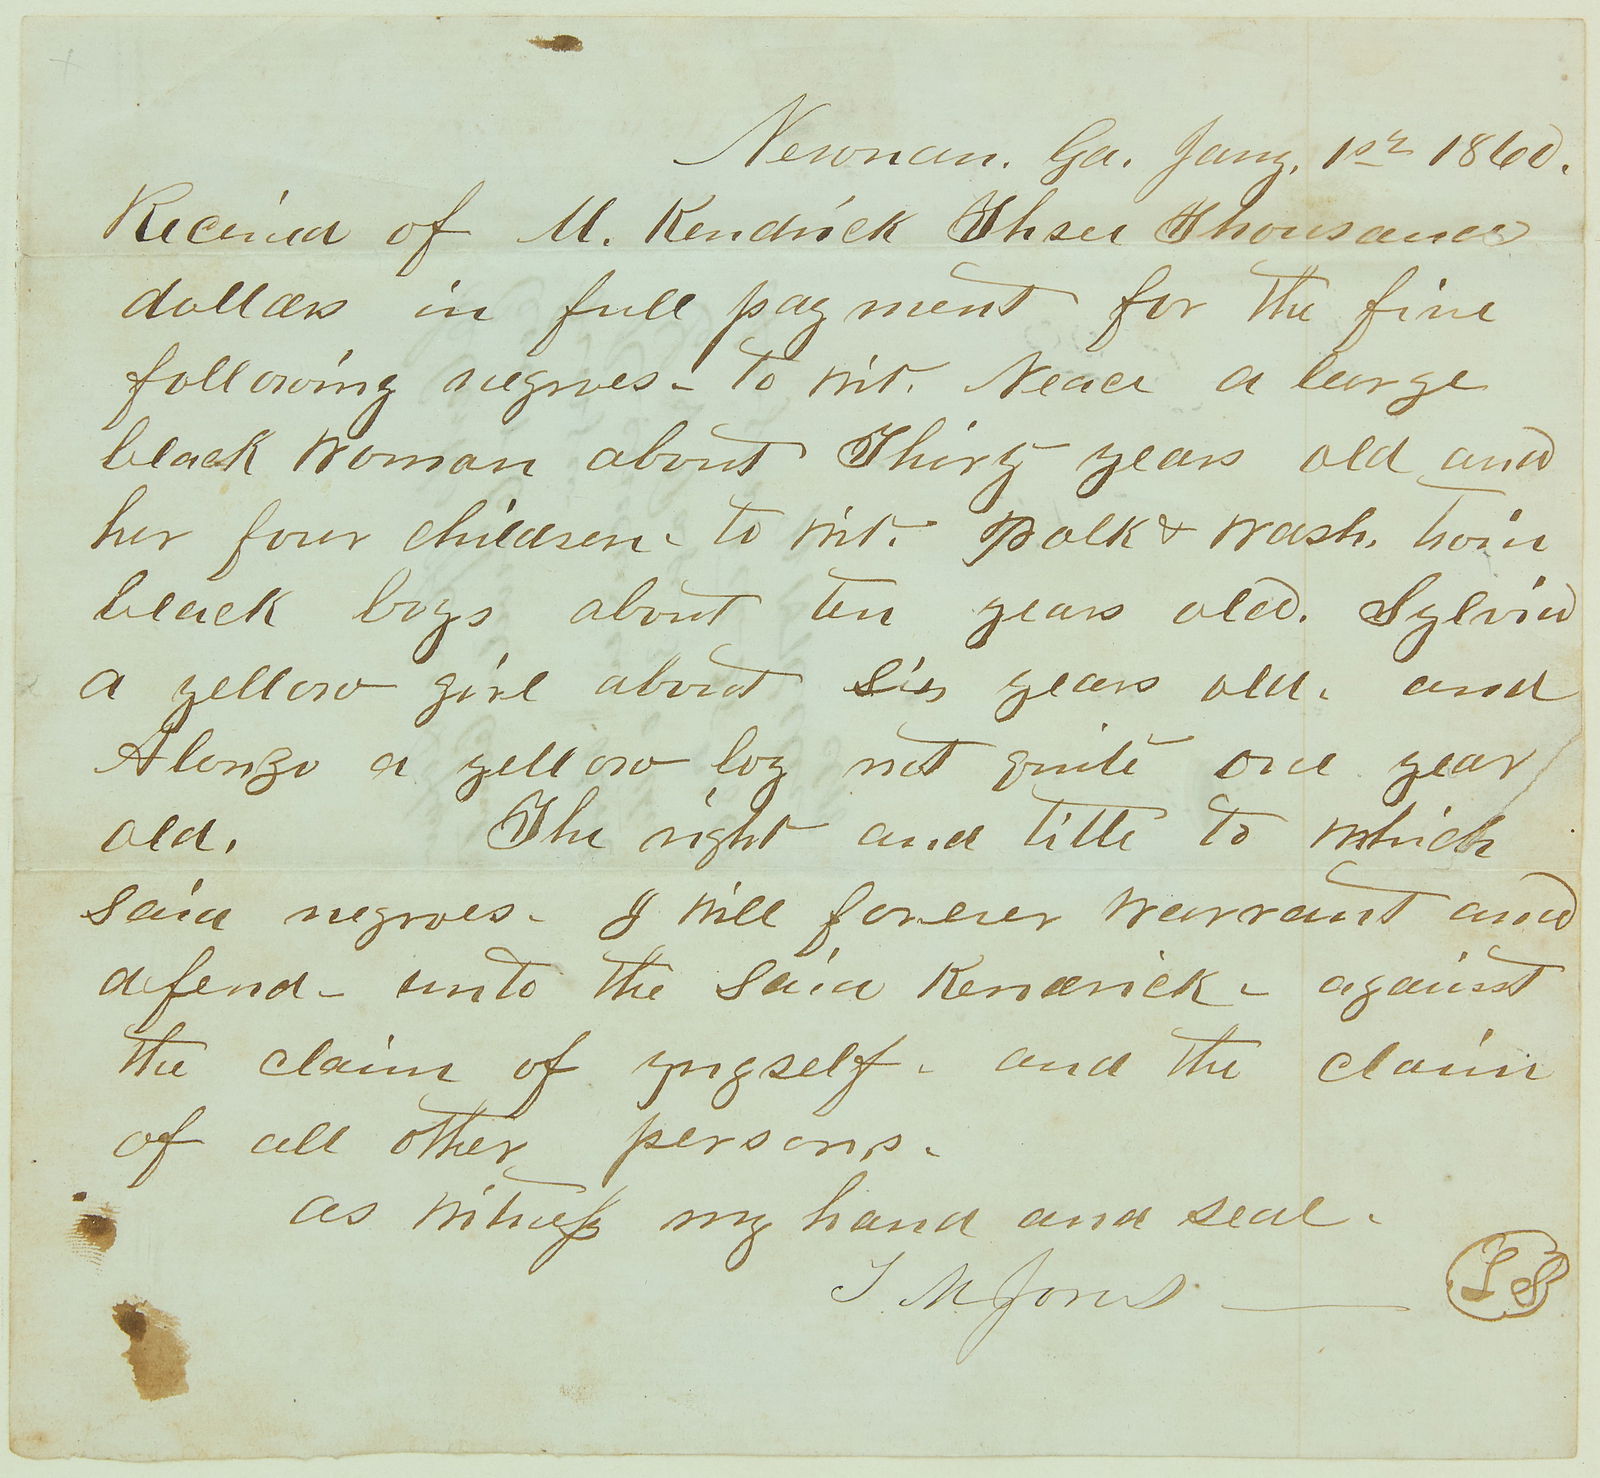 Newnan. Ga. Jany. 1st 1860.
Received of M. Kendrick Three Thousand
dollars in full payment for the five
following negroes - to wit. a large
black woman about Thirty years old and
her four children - to wit. Polk & Wash. twin
black boys about ten years old. Sylvia
a yellow girl about Six years old. and
Alonzo a yellow boy not quite one year
old. The right and title to which
said negroes - I will forever warrant and
defend - unto the said Kendrick - against
the claim of myself - and the claim
of all other persons.
as witness my hand and seal -
Jones